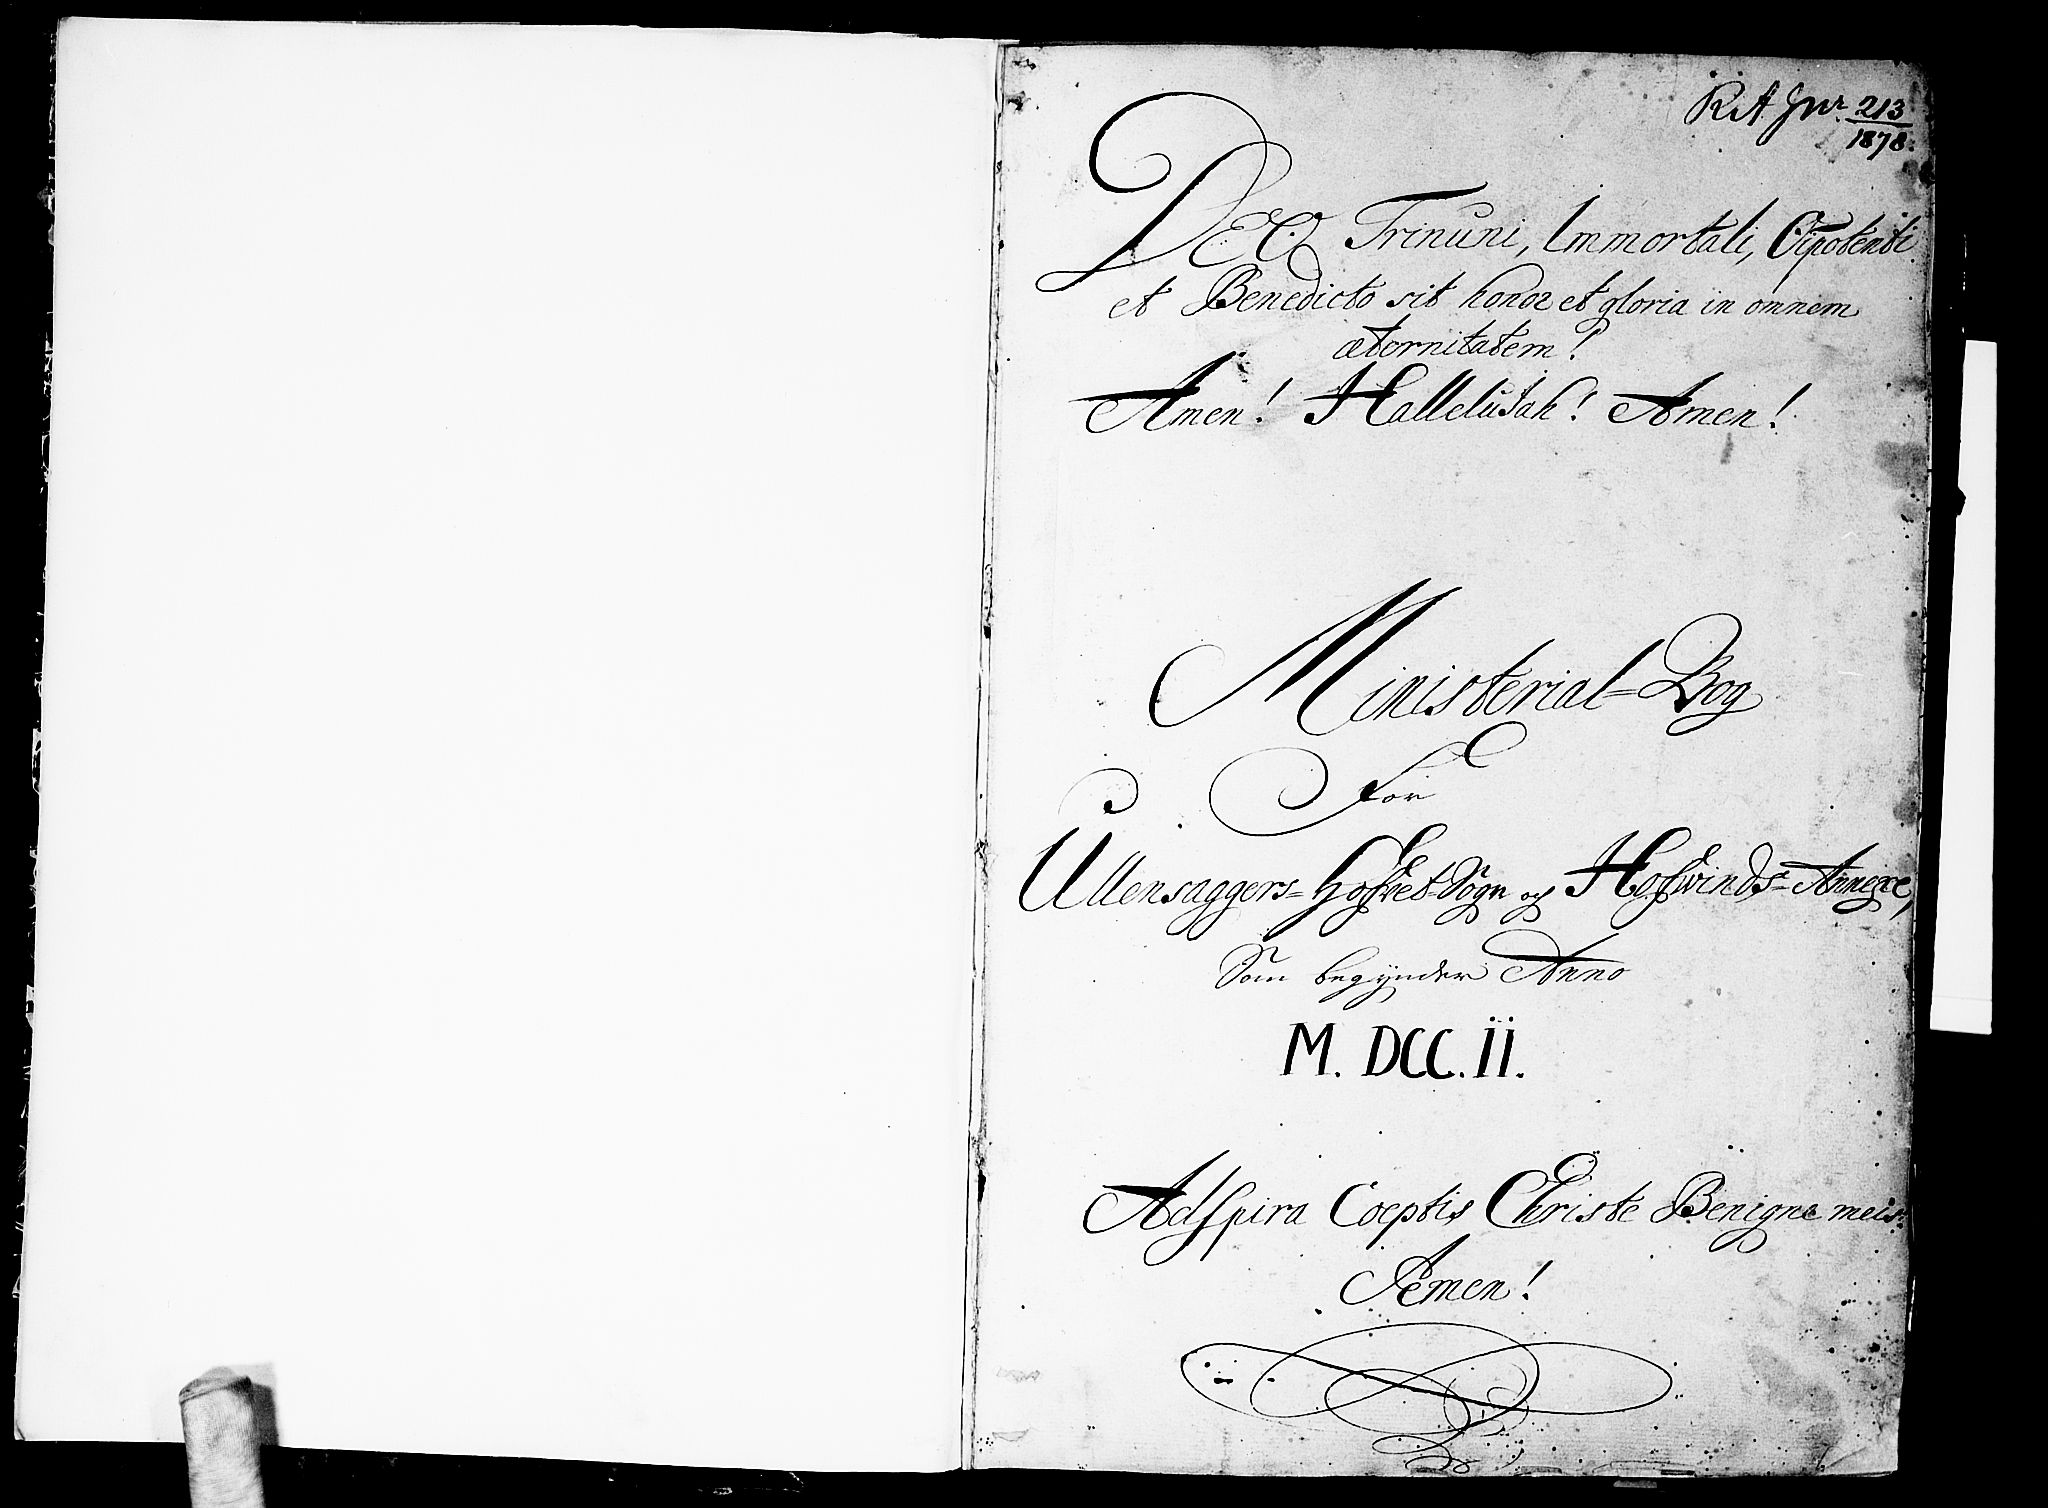 RA Jnr 213/1878.
DEO Trinuni, Immortali, Oīpotenti
et Benedicto sit honor et gloria in omnem
æternitatem!
Amen! Hallelujah! Amen!
Ministerial=Bog
for
Ullensaggers= Hofvet=Sogn og Hofwinds=Annexe,
Som begynder Anno
M. DCC. II.
Adspira Coeptis Christe Benigne meis
Aemen!